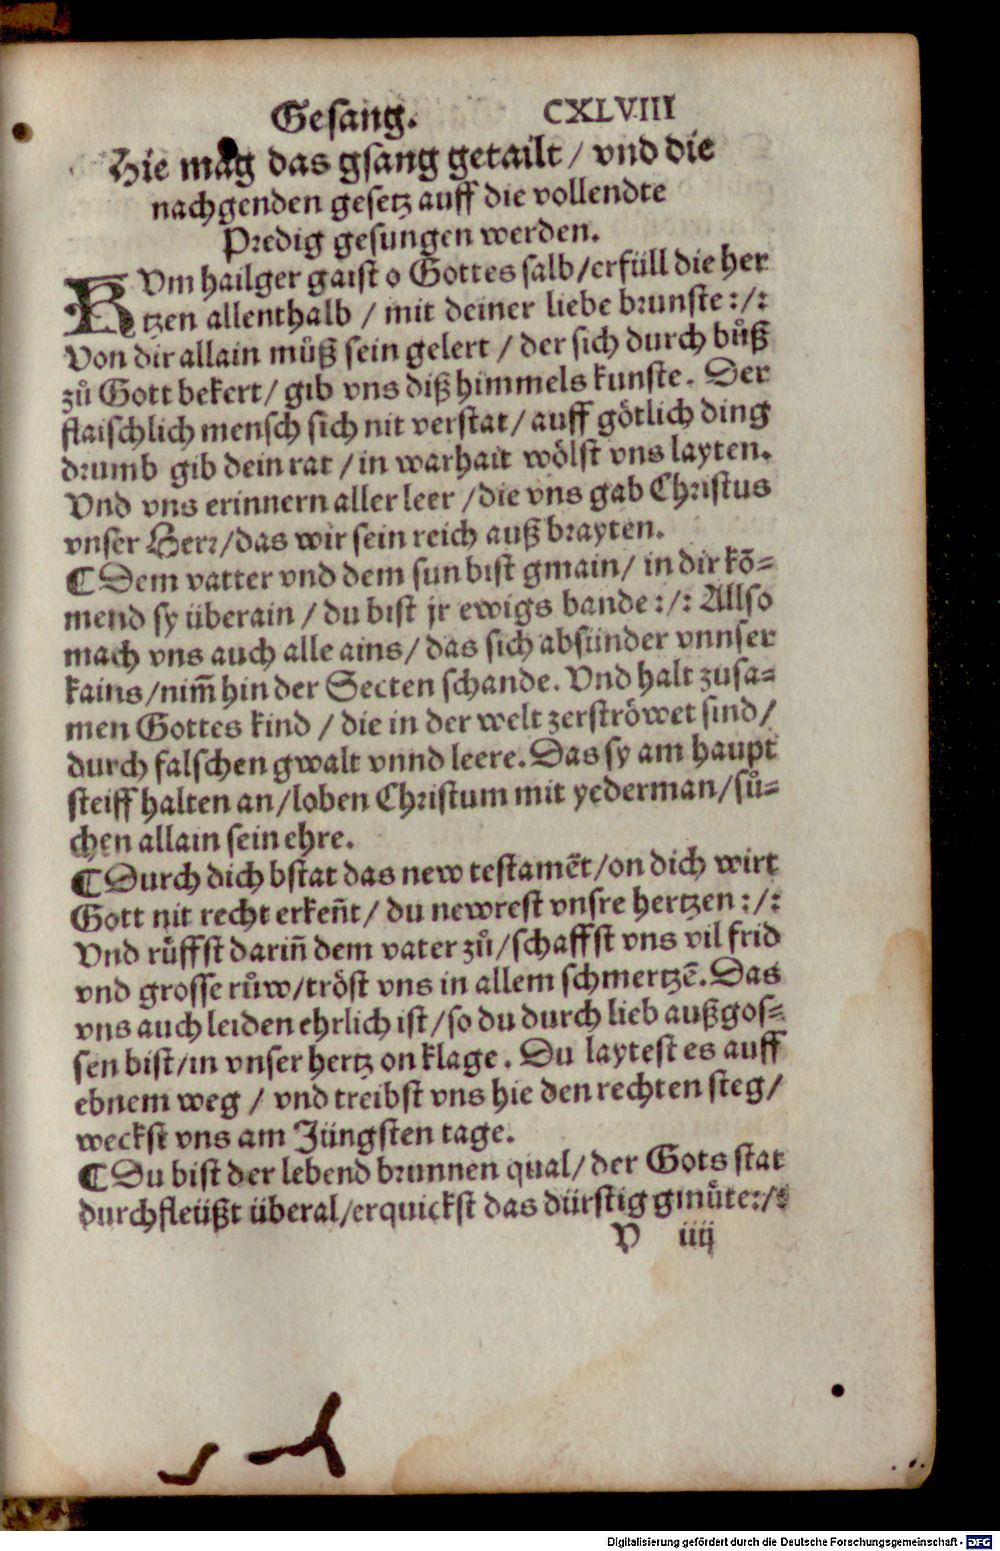 Gesang. CXLVIII
Hie mag das gsang getailt / vnd die
nachgenden gesetz auff die vollendte
Predig gesungen werden.
KVm hailger gaist o Gottes salb/erfüll die her
tzen allenthalb / mit deiner liebe brunste :/:
Von dir allain muͦß sein gelert / der sich durch buͦß
zuͦ Gott bekert/ gib vns diß himmels kunste. Der
flaischlich mensch sich nit verstat/ auff götlich ding
drumb gib dein rat / in warhait wölst vns layten.
Vnd vns erinnern aller leer /die vns gab Christus
vnser Herr/das wir sein reich auß brayten.
¶ Dem vatter vnd dem sun bist gmain/ in dir kō-
mend sy überain / du bist jr ewigs bande :/: Allso
mach vns auch alle ains/ das sich absünder vnnser
kains/nim̄ hin der Secten schande. Vnd halt zusa-
men Gottes kind / die in der welt zerströwet sind/
durch falschen gwalt vnnd leere. Das sy am haupt
steiff halten an/loben Christum mit yederman/suͦ-
chen allain sein ehre.
¶ Durch dich bstat das new testamēt/on dich wirt
Gott nit recht erken̄t/ du newrest vnsre hertzen :/:
Vnd ruͤffst darin̄ dem vater zuͦ/schaffst vns vil frid
vnd grosse ruͦw/tröst vns in allem schmertzē. Das
vns auch leiden ehrlich ist/so du durch lieb außgos-
sen bist/in vnser hertz on klage. Du laytest es auff
ebnem weg / vnd treibst vns hie den rechten steg/
weckst vns am Jüngsten tage.
¶ Du bist der lebend brunnen qual/ der Gots stat
durchfleüßt überal/erquickst das dürstig gmuͤte:/:
V iiij
Digitalisierung gefördert durch die Deutsche Forschungsgemeinschaft - DFG